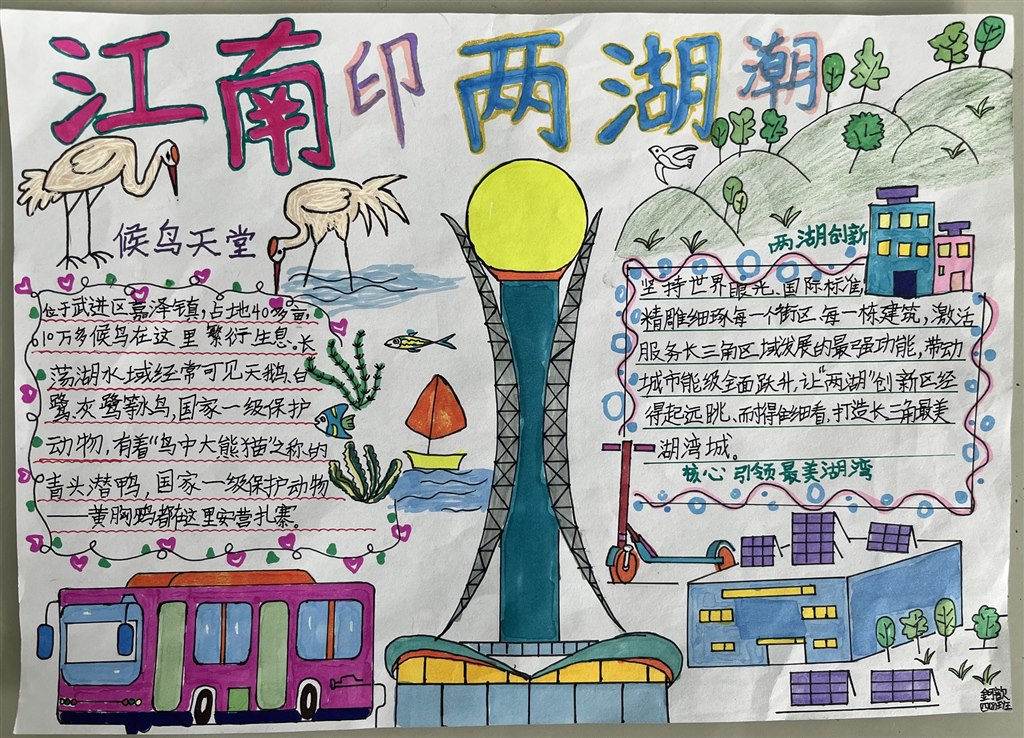 江南印两湖潮
候鸟天堂
位于武进区嘉泽镇,占地40多亩,
10万多候鸟在这里繁衍生息。长
荡湖水域经常可见天鹅、白
鹭、灰鹭等水鸟,国家一级保护
动物,有着“鸟中大熊猫”之称的
青头潜鸭,国家一级保护动物
——黄胸鹀都在这里安营扎寨。
两湖创新
坚持世界眼光、国际标准
精雕细琢每一个街区、每一栋建筑,激活
服务长三角区域发展的最强功能,带动
城市能级全面跃升,让“两湖”创新区经
得起远眺、耐得住细看,打造长三角最美
湖湾城。
核心引领最美湖湾